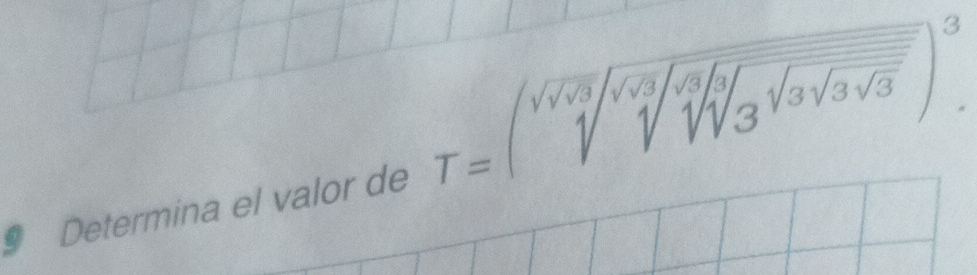 9 Determina el valor de $T = \left( \sqrt[\sqrt{\sqrt{\sqrt{3}}}]{\sqrt[\sqrt{\sqrt{3}}]{\sqrt[\sqrt{3}]{\sqrt[3]{3^{\sqrt{3\sqrt{3\sqrt{3}}}}}}}} \right)^3$.